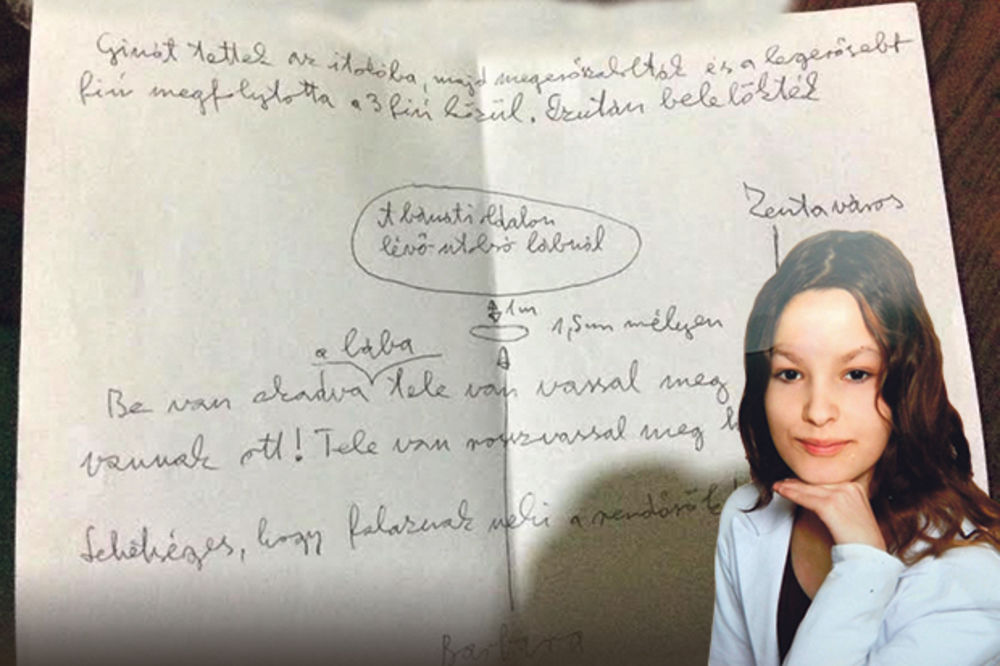 Ginát tettek az italába, majd megerőszakolták és a legerősebt
fiú megfolytotta a 3 fiú közül. Ezután belelökték
Zenta város
A bánáti oldalon
lévő utolsó lábnál
1m
1,5m mélyen
a lába
Be van akadva tele van vassal meg
vannak ott! Tele van rosszvassal meg
Lehetséges, hogy falaznak neki a rendőrök
Barbara